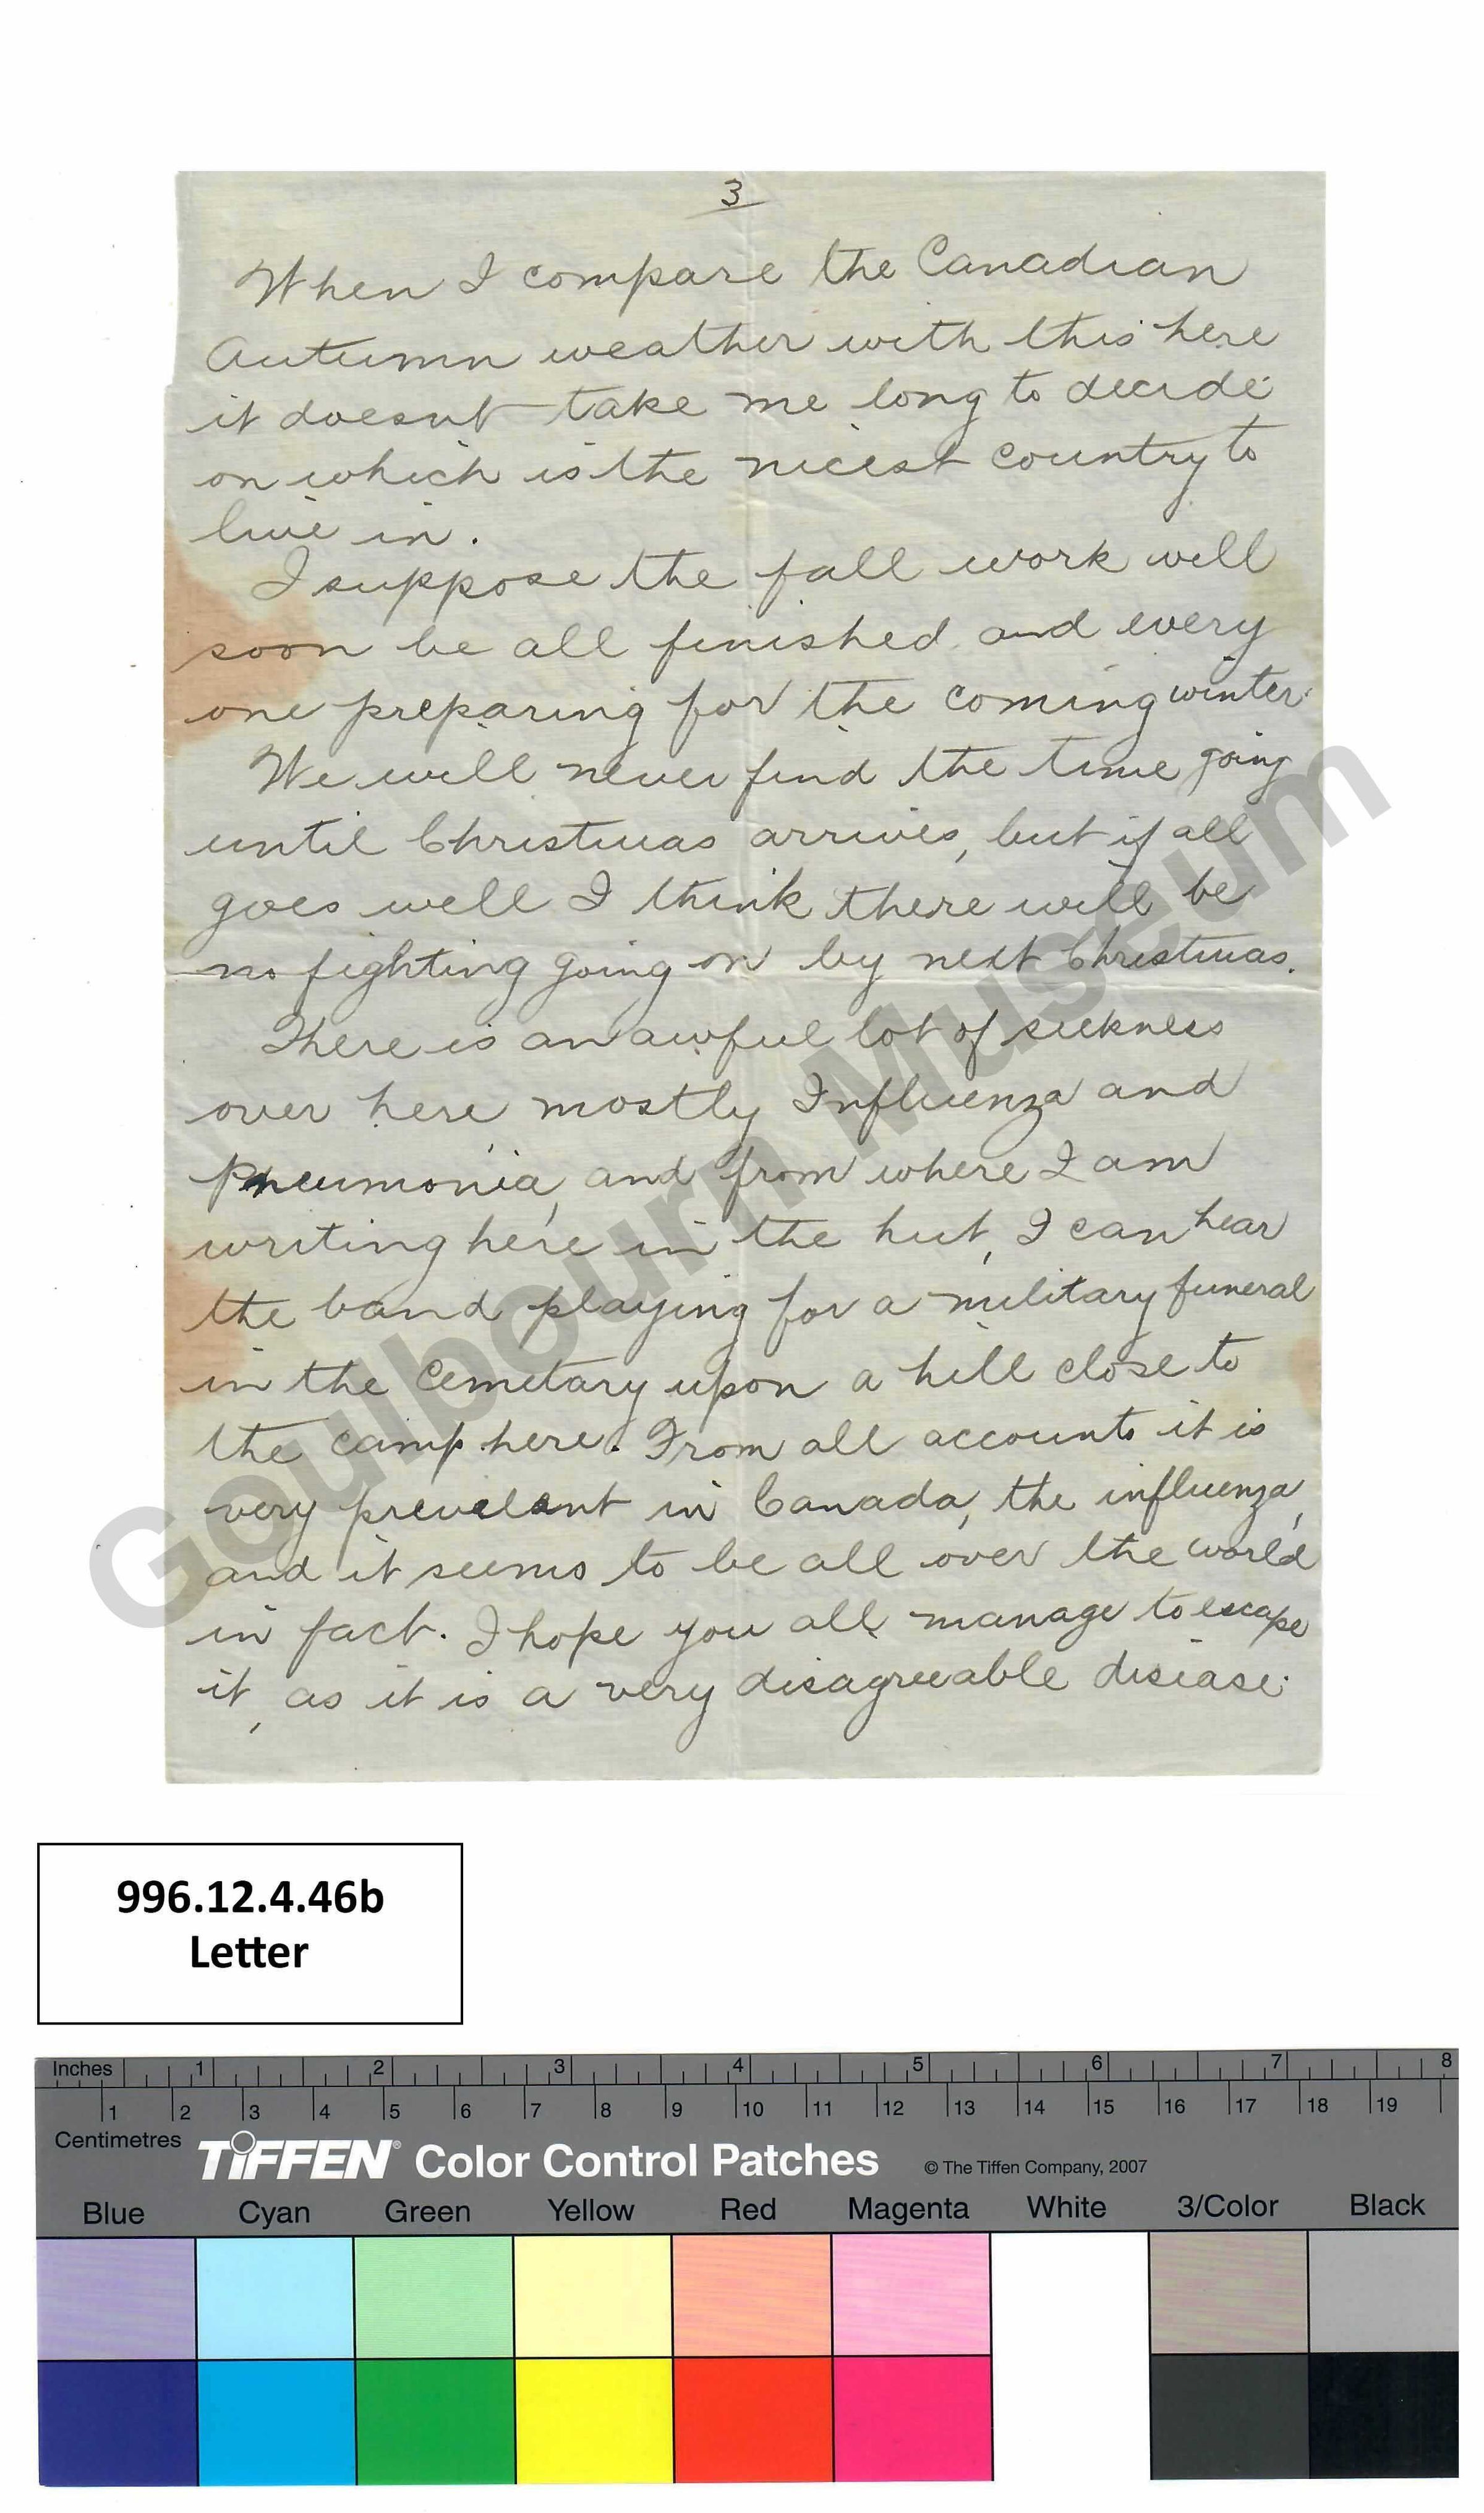 3
When I compare the Canadian
Autumn weather with this here
it doesnt take me long to decide
on which is the nicest country to
live in.
I suppose the fall work will
soon be all finished and every
one preparing for the coming winter.
We will never find the time going
until Christmas arrives, but if all
goes well I think there will be
no fighting going on by next Christmas.
There is an awful lot of sickness
over here mostly Influenza and
Pneumonia, and from where I am
writing here in the hut, I can hear
the band playing for a military funeral
in the Cemetary upon a hill close to
the camp here. From all accounts it is
very prevelant in Canada, the influenza,
and it seems to be all over the world
in fact. I hope you all manage to escape
it, as it is a very disagreeable disease.
Goulbourn Museum
996.12.4.46b
Letter
Inches 1 2 3 4 5 6 7 8
1 2 3 4 5 6 7 8 9 10 11 12 13 14 15 16 17 18 19
Centimetres
TIFFEN® Color Control Patches © The Tiffen Company, 2007
Blue Cyan Green Yellow Red Magenta White 3/Color Black